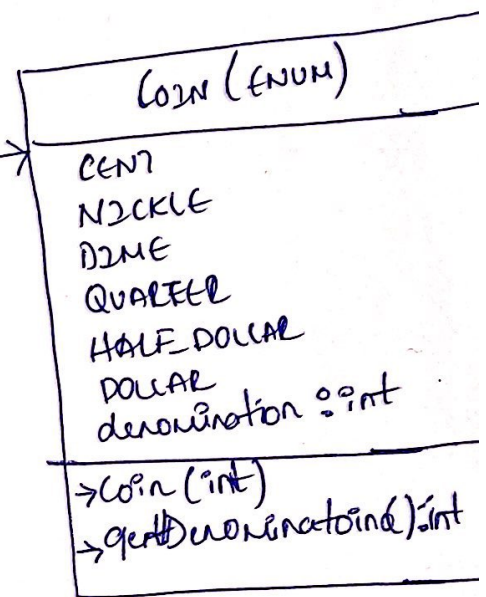 COIN (ENUM)
CENT
NICKLE
DIME
QUARTER
HALF_DOLLAR
DOLLAR
denomination : int
→ Coin (int)
→ getDenominatoin() : int